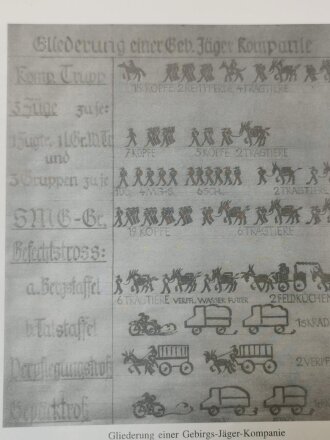 Gliederung einer Geb. Jäger Kompanie
Komp. Trupp
18 KÖPFE 2 REITPFERDE 4 TRAGTIERE
3 Züge zu je:
7 KÖPFE 5 KÖPFE 2 TRAGTIERE
und
3 Gruppen zu je
2 TRAGTIERE
S.M.G.-Gr.
19 KÖPFE 6 TRAGTIERE
Gefechtstross:
a. Bergstaffel
6 TRAGTIERE VERPFL. WASSER FUTTER 2 FELDKÜCHEN
b. Talstaffel
1 KRAD
Verpflegungstroß
2 VERPF
Gepäcktroß
Gliederung einer Gebirgs-Jäger-Kompanie